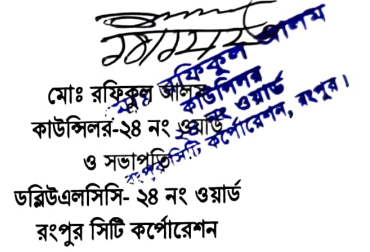 মোঃ রফিকুল আলম
কাউন্সিলর-২৪ নং ওয়ার্ড
ও সভাপতি
ডব্লিউএলসিসি- ২৪ নং ওয়ার্ড
রংপুর সিটি কর্পোরেশন
মোঃ রফিকুল আলম
কাউন্সিলর
২৪ নং ওয়ার্ড
রংপুর সিটি কর্পোরেশন, রংপুর।